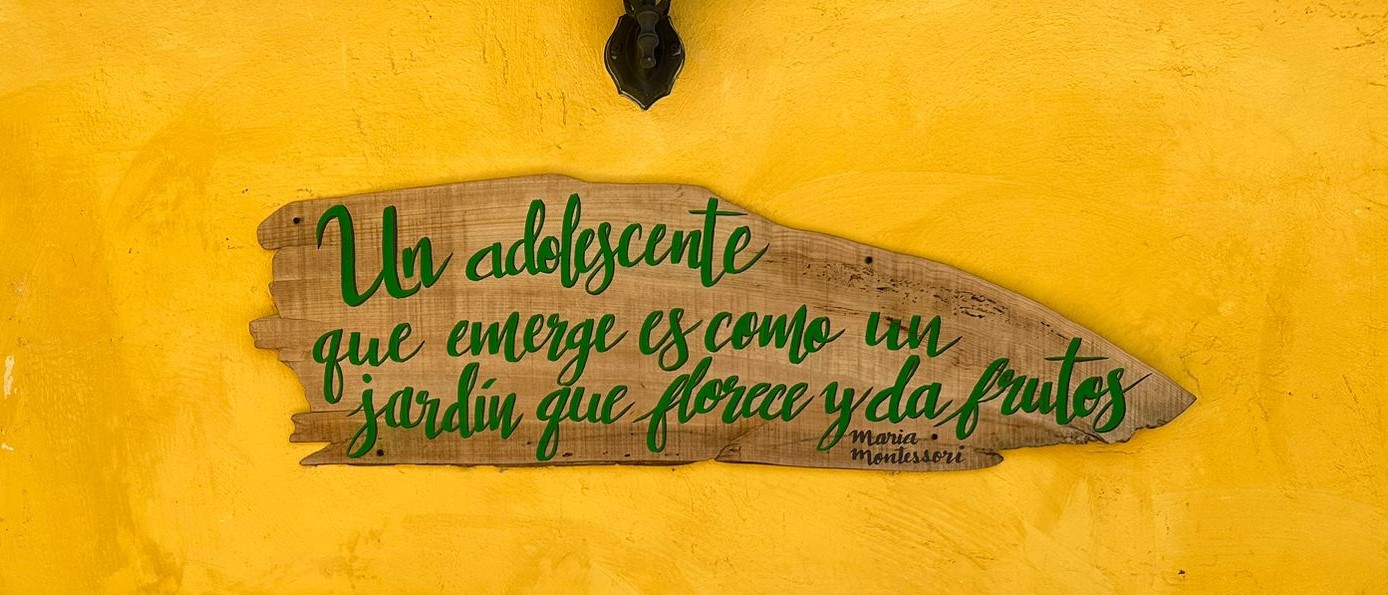 Un adolescente
que emerge es como un
jardín que florece y da frutos
Maria
Montessori